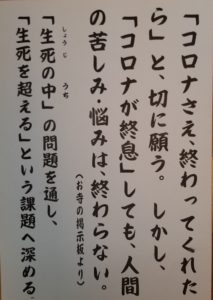 「コロナさえ、終わってくれた
ら」と、切に願う。しかし、
「コロナが終息」しても、人間
の苦しみ・悩みは、終わらない。
〈お寺の掲示板より〉
「生死の中」の問題を通し、
しょうじ うち
「生死を超える」という課題へ深める。